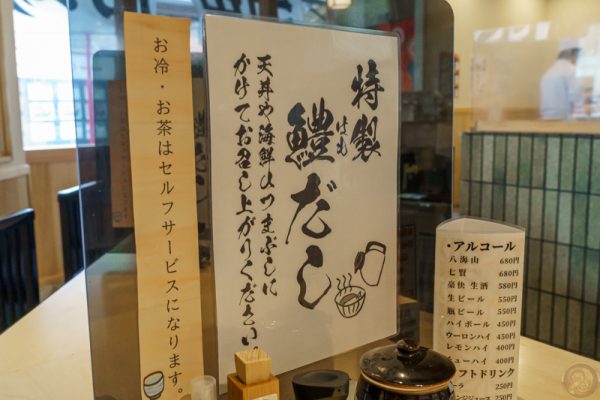 お冷・お茶はセルフサービスになります。
特製
はも
鱧だし
天丼や海鮮ひつまぶしに
かけてお召し上がりください。
・アルコール
八海山 680円
七賢 680円
豪快 生酒 580円
生ビール 550円
瓶ビール 550円
ハイボール 450円
ウーロンハイ 450円
レモンハイ 400円
チューハイ 400円
フトドリンク
ーラ 250円
ンジジュース 250円